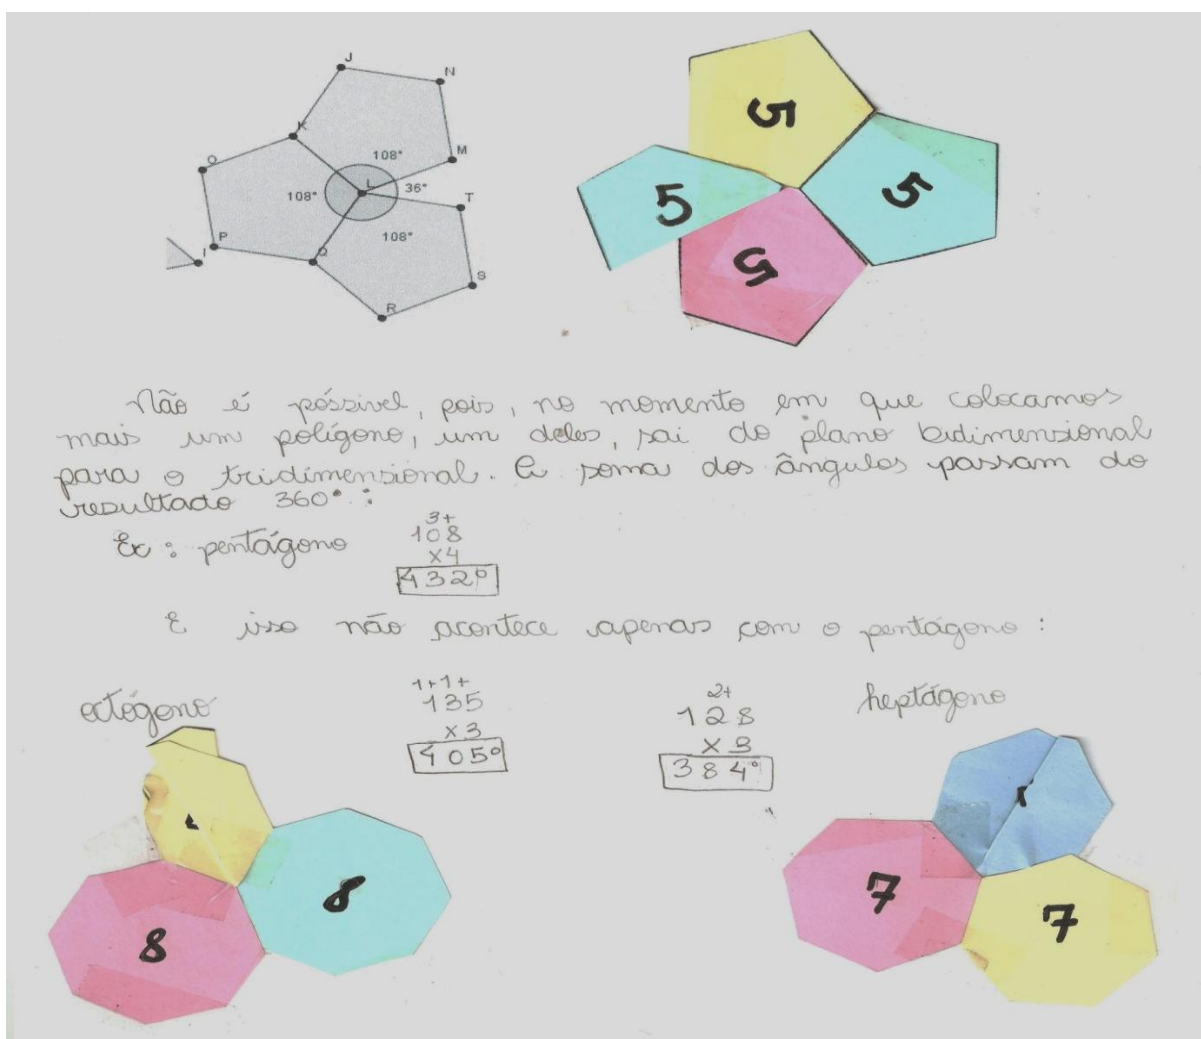 J
N
K
O
108°
M
L
36°
108°
T
108°
P
I
Q
S
R
5
5
5
5
Não é póssivel, pois, no momento em que colocamos
mais um polígono, um deles, sai do plano bidimensional
para o tridimensional. A soma dos ângulos passam do
resultado 360°:
Ex: pentágono
3+
108
x4
432°
E isso não acontece apenas com o pentágono:
octógono
1+1+
135
x3
405°
2+
128
x3
384°
heptágono
8
8
7
7